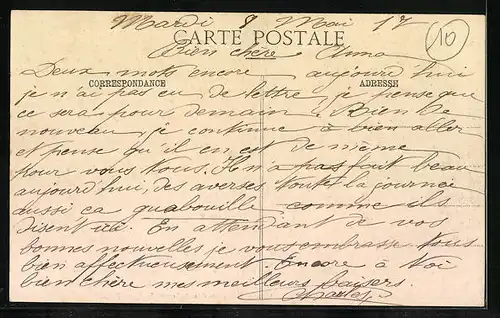 Mardi 8 Mai 17
10
CARTE POSTALE
Bien chère Anna
Deux mots encore aujourd'hui
CORRESPONDANCE
ADRESSE
je n'ai pas eu de lettre je pense que
ce sera pour demain. Rien de
nouveau, je continue à bien aller
et pense qu'il en est de même
pour vous tous. Il n'a pas fait beau
aujourd'hui, des averses toute la journée
aussi ça guabouille comme ils
disent ici. En attendant de vos
bonnes nouvelles je vous embrasse tous
bien affectueusement. Encore à toi
bien chère mes meilleurs baisers.
Charles